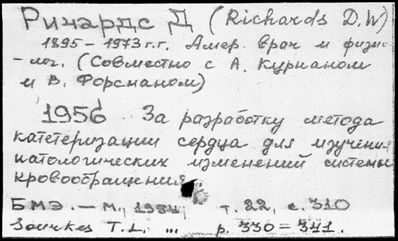 Ричардс Д (Richards D.W)
1895 – 1973 г.г. Амер. врач и физио-
-лог. (Совместно с А. Курнаном
и В. Форсманом)
1956 За разработку метода
катетеризации сердца для изучения
патологических изменений системы
кровообращения
БМЭ. – М., 1984, т. 22, с. 310
Sourkes T.L. ,, p. 330 = 341.